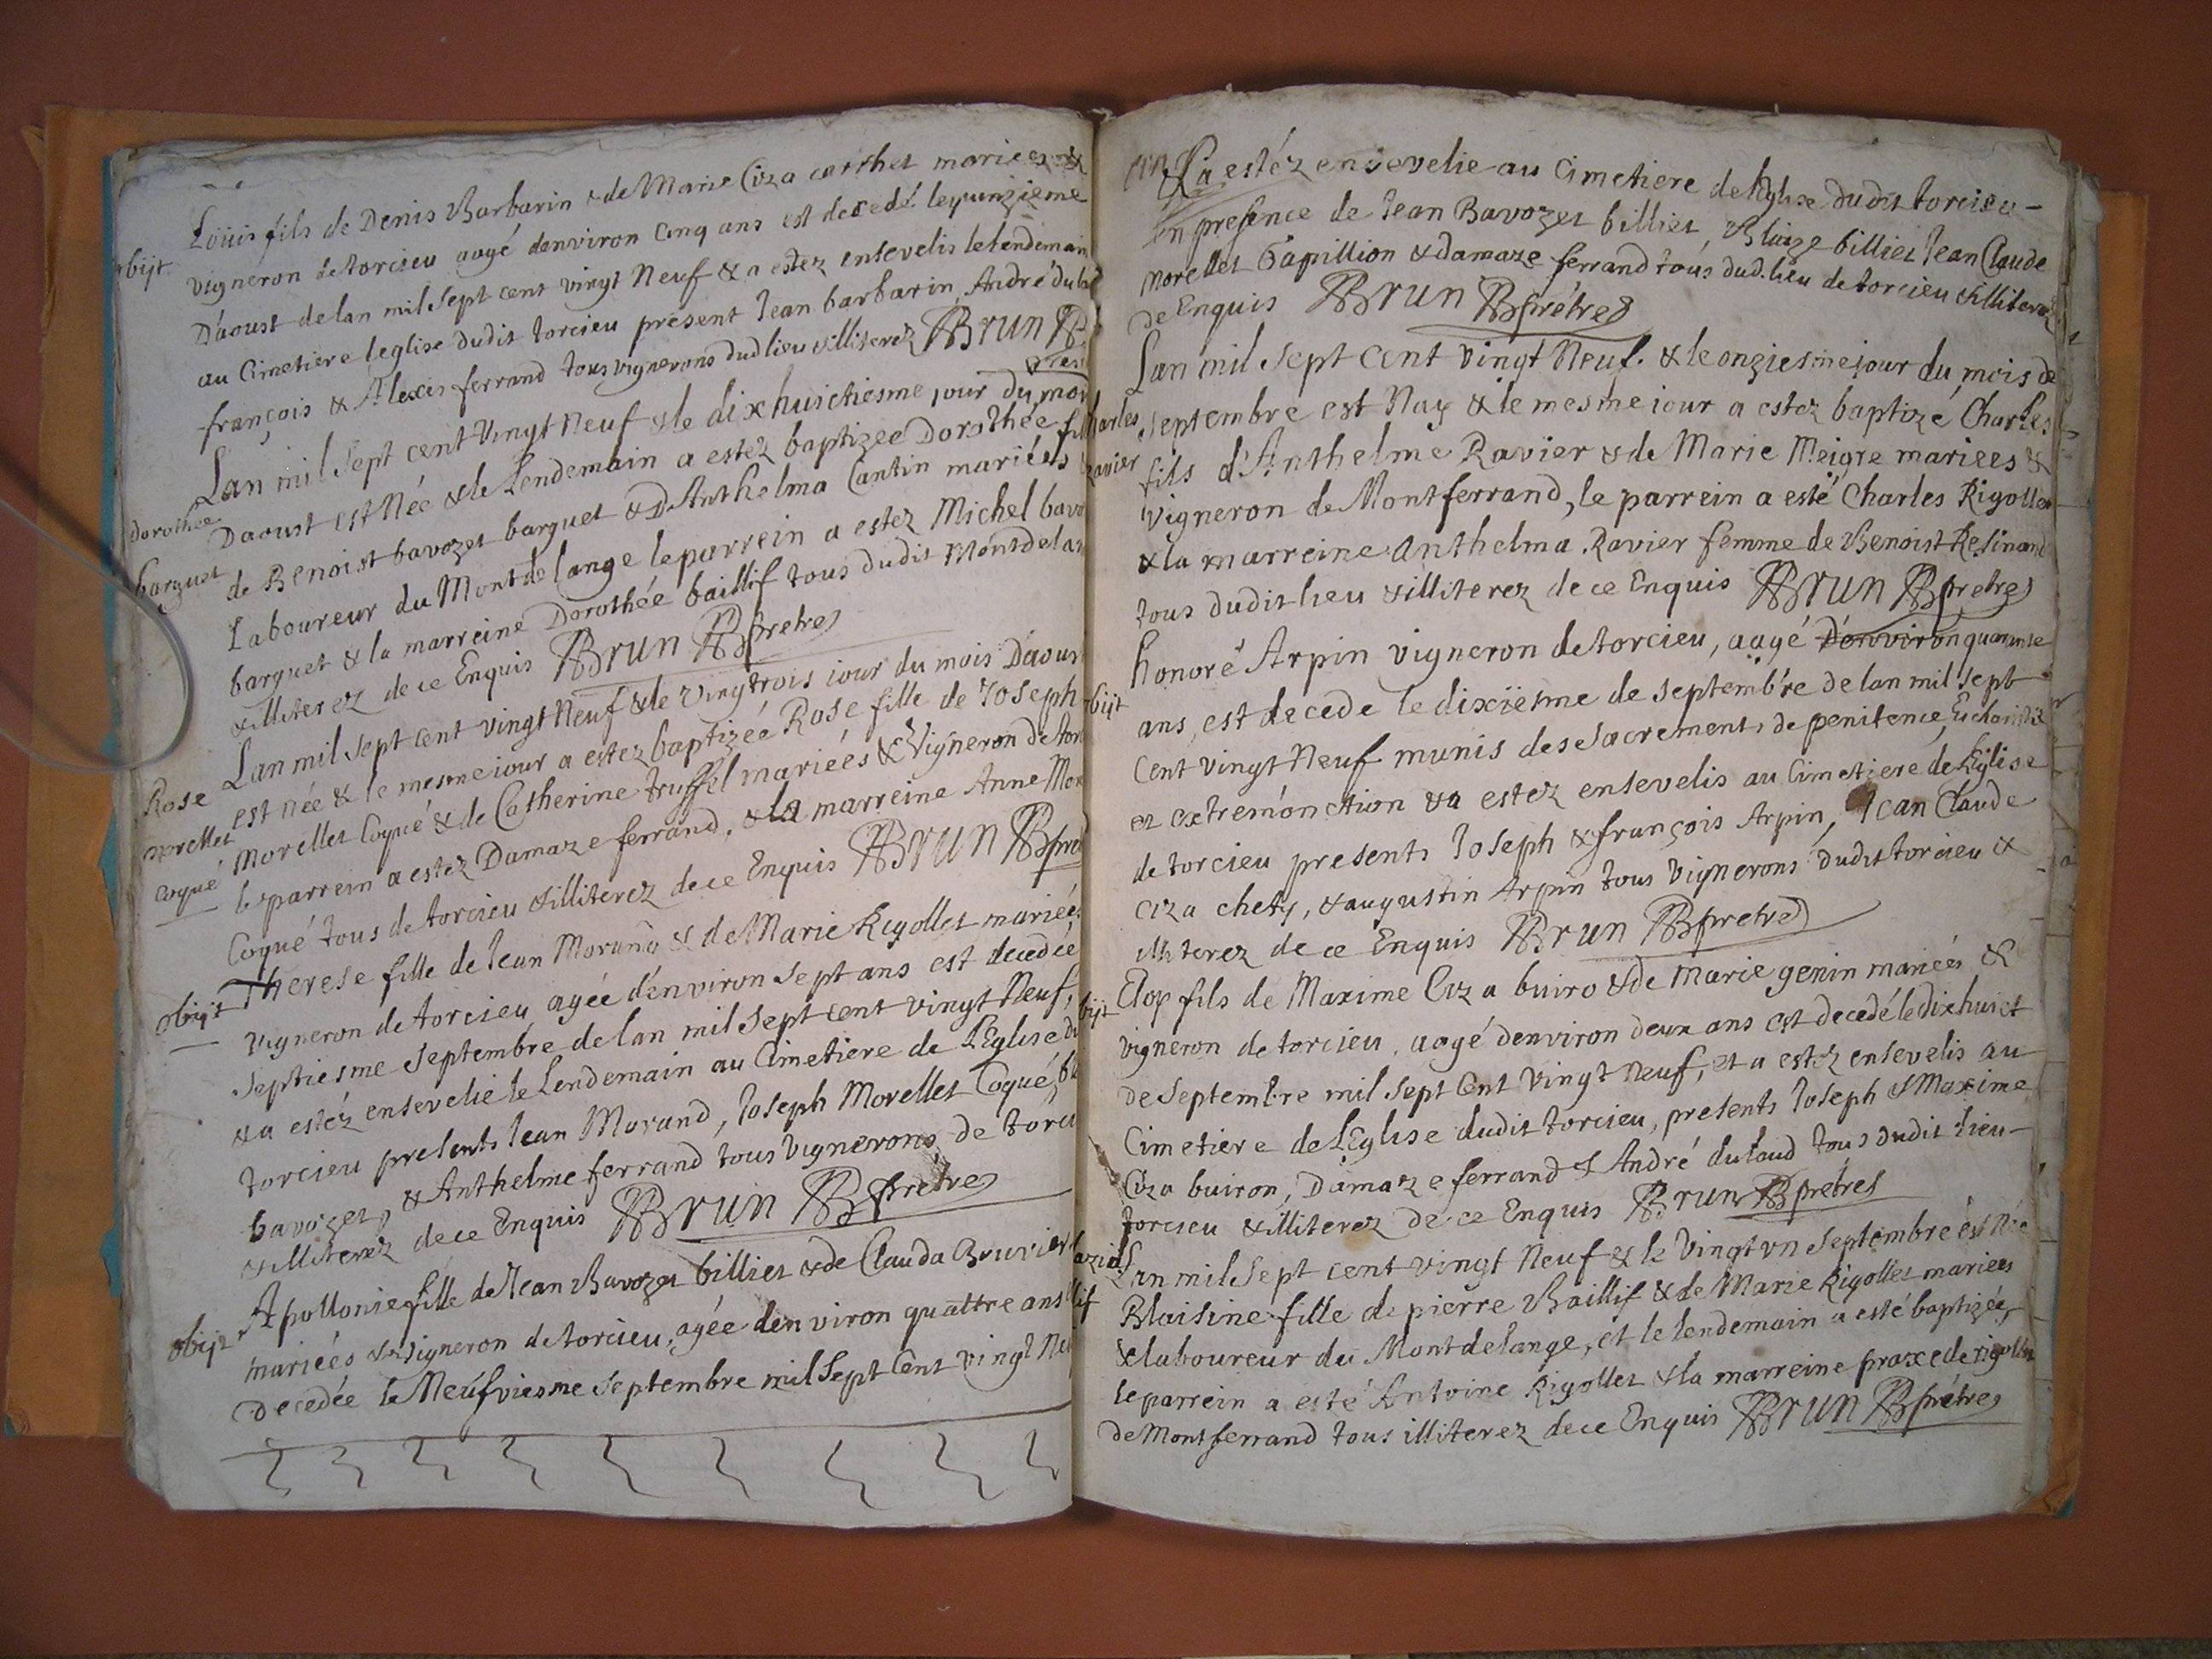 Loüis fils de Denis Barbarin & de Marie Ciza carthet mariees &
obijt
vigneron de torcieu aagé denviron cinq ans est decedé le quinzieme
Daoust de lan mil Sept cent vingt Neuf & a estez ensevelis le lendemain
au Cimetiere leglise dudit torcieu présent Jean barbarin, André du
françois & Alexis ferrand tous vignerons dud lieu & illiterez Brun
Lan mil Sept cent Vingt Neuf & le dixhuictiesme jour du mois
Dorothée
Daoust est Née & le Lendemain a estéz baptizee Dorothée
barguet
de Benoist bavozet barguet & D'Anthelma Cantin mariées
Laboureur du Montdelange le parrein a estez Michel
barguet & la marreine Dorothée baillif tous dudit
& illiterez de ce Enquis Brun pretre
Lan mil Sept cent vingt Neuf & le Vingtrois jour du mois Daoust
Rose
est née & le mesme jour a estez baptizée Rose fille de Joseph
morellet
Morellet Coqué & de Catherine truffel mariées & Vigneron de
coqué
le parrein a estez Damaze ferrand, & la marreine Anne
Coqué tous de torcieu & illiterez de ce Enquis Brun
obijt
Therese fille de Jean Morand & de Marie Rigollet mariées
vigneron de torcieu agée d'environ Sept ans est decedée
Septiesme Septembre de lan mil Sept cent vingt Neuf,
& a estéz ensevelie le Lendemain au Cimetiere de L'Eglise
torcieu presents Jean Morand, Joseph Morellet Coqué,
bavozet, & Anthelme ferrand tous vignerons de
& illiterez de ce Enquis Brun prêtre
obijt
Apollonie fille de Jean Bavozet billiet & de Clauda Bruvier
mariées & vigneron de torcieu, agée denviron quattre ans
Decedée le Neufviesme Septembre mil Sept Cent Vingt
& a estéz ensevelie au Cimetiere de leglise dudit torcieu
en presence de Jean Bavozet billiet, Blaize billiet Jean Claude
morellet Papillion & damaze ferrand tous dud. lieu de torcieu & illiterez
de Enquis Brun prêtre
Lan mil Sept cent Vingt Neuf. & le onziesme jour du mois de
Charles
Septembre est Nay & le mesme jour a estez baptizé Charles
Ravier
fils d'Anthelme Ravier & de Marie Meigre mariees &
Vigneron de Montferrand, le parrein a esté Charles Rigollet
& la marreine Anthelma Ravier femme de Benoist Resinand
tous dudit lieu & illiterez de ce Enquis Brun prêtre
honoré Arpin vigneron de torcieu, aagé D'environ quarante
obijt
ans, est decede le dixiesme de Septembre de lan mil Sept
Cent vingt Neuf munis des Sacrements de penitence, Eucharistie
et extremonction & a estéz ensevelis au Cimetiere de Leglise
de torcieu presents Joseph & françois Arpin, Jean Claude
ciza chety, & augustin Arpin tous Vignerons dudit torcieu &
illiterez de ce Enquis Brun prêtre
Eloy fils de Maxime Ciza buiro & de Marie genin mariées &
obijt
vigneron de torcieu, aagé denviron deux ans est decedé le dixhuict
de Septembre mil Sept Cent Vingt Neuf, et a estéz ensevelis au
Cimetiere de L'Eglise dudit torcieu, presents Joseph & Maxime
Ciza buiron, Damaze ferrand & André dulaud tous dudit lieu
torcieu & illiterez de ce Enquis Brun prêtre
Lan mil Sept cent vingt Neuf & le Vingt vn Septembre est Née
Blaisine fille de pierre Baillif & de Marie Rigollet mariees
& laboureur du Montdelange, et le lendemain a esté baptizée,
le parrein a esté Antoine Rigollet & la marreine praxede rigollet
de Montferrand tous illiterez de ce Enquis Brun prêtre